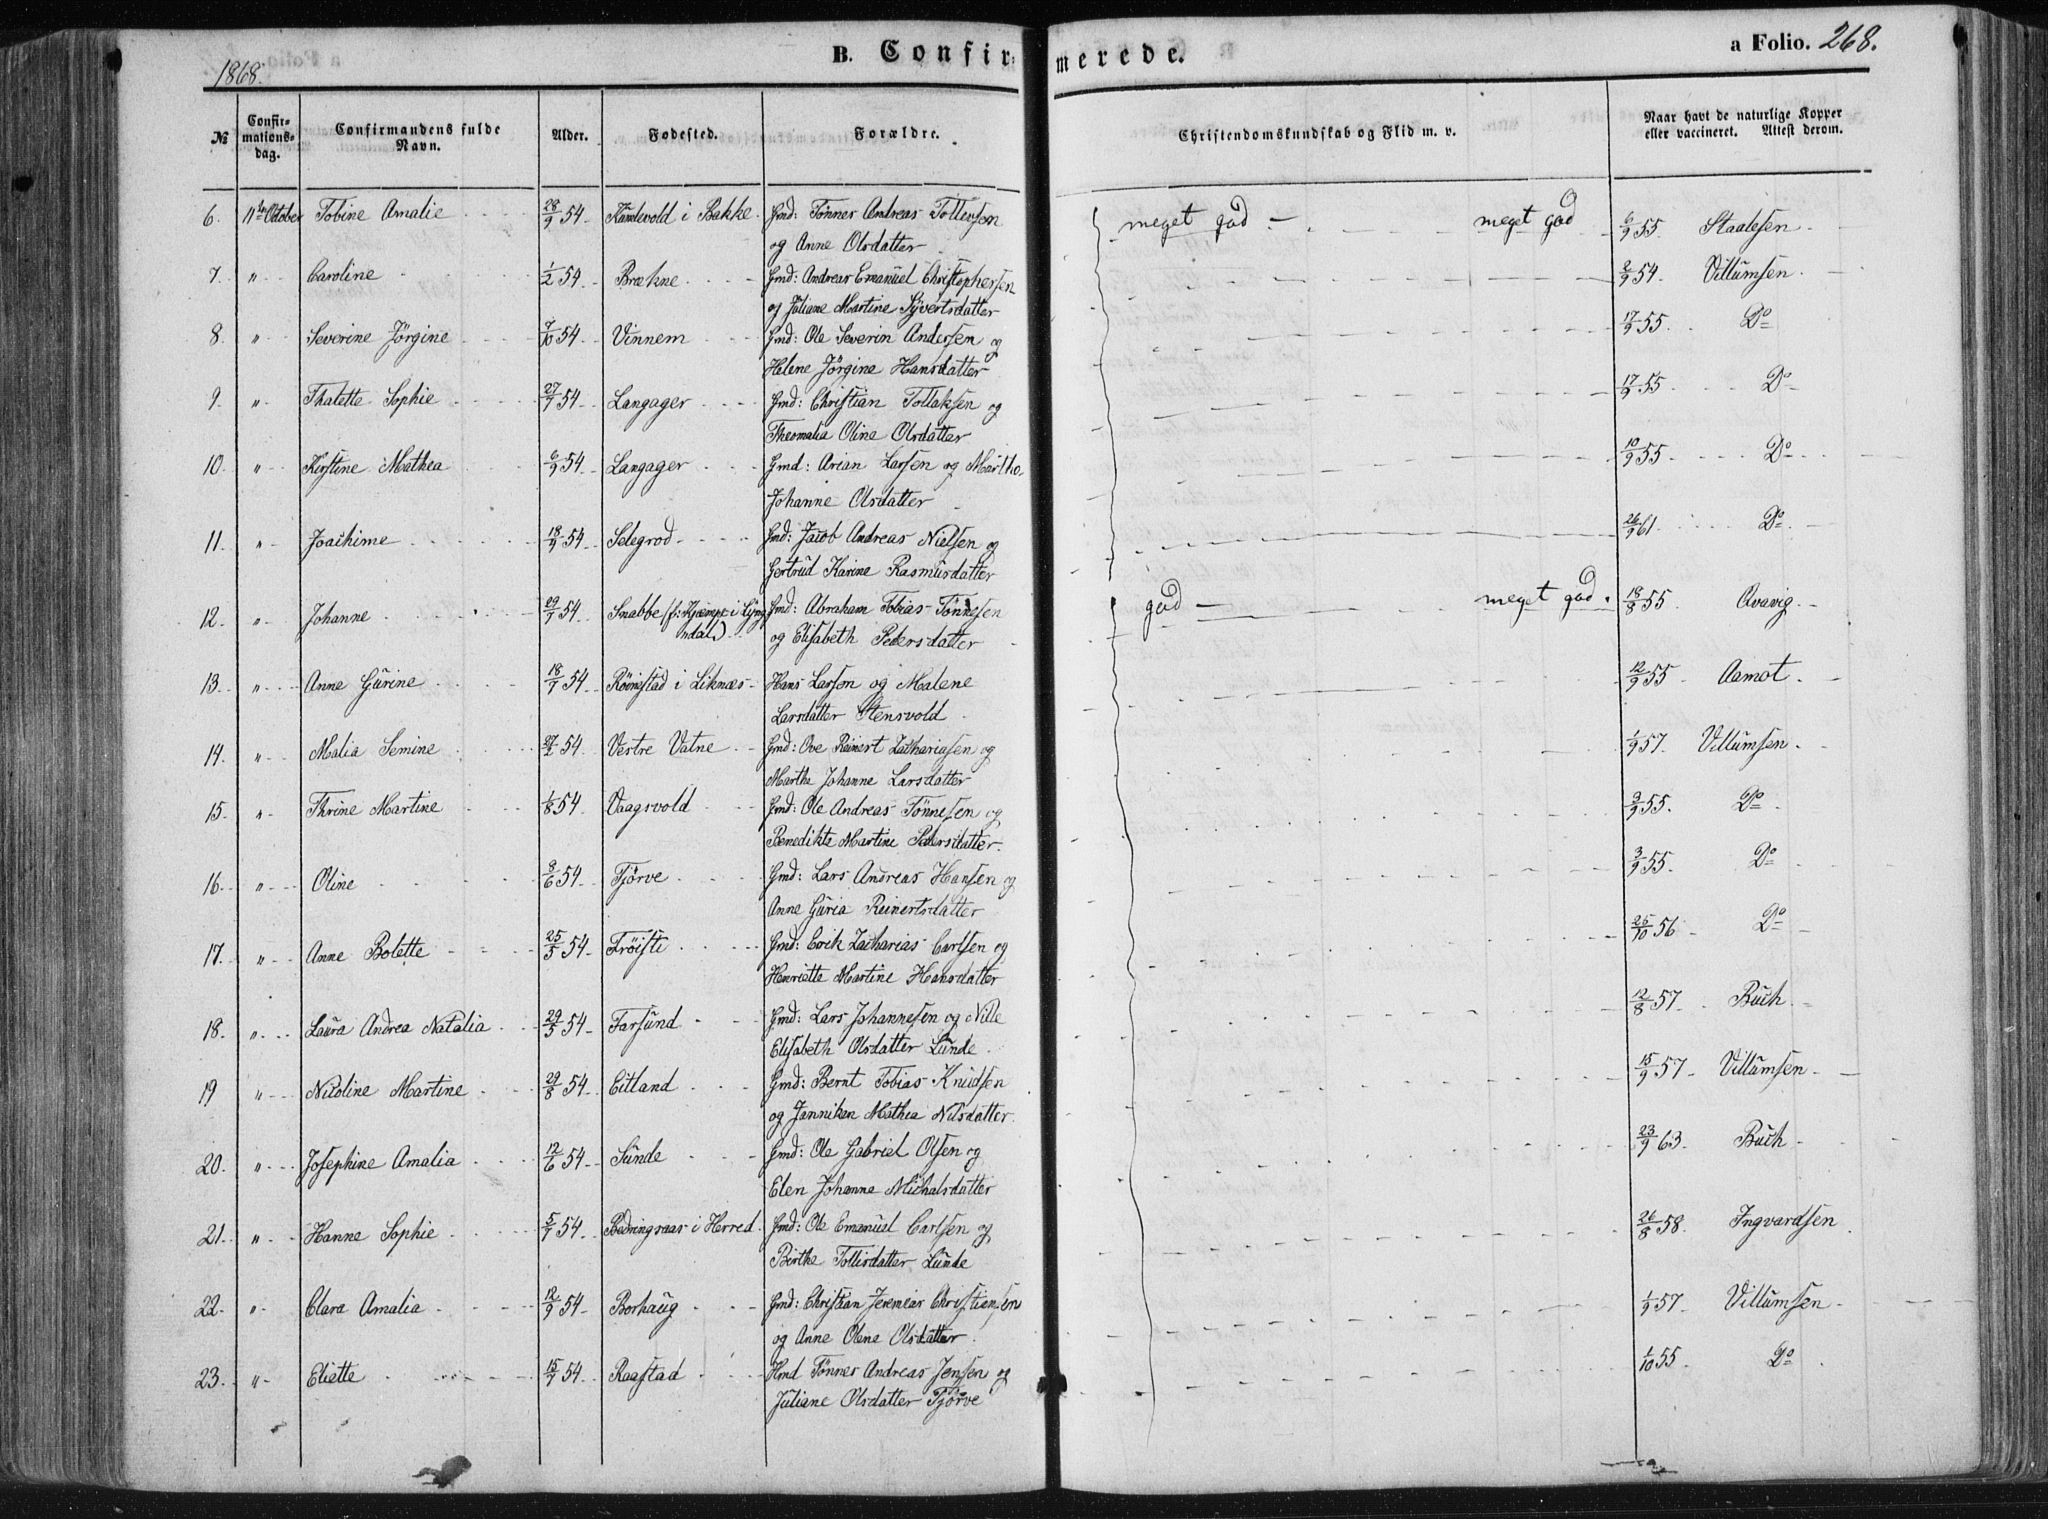 1868.
B. Confirmerede.
a Folio. 268.
№ Confirmations-dag. Confirmandens fulde Navn. Alder. Fødested. Forældre. Christendomskundskab og Flid m. v. Naar havt de naturlige Kopper eller vaccineret. Attest derom.
6 11te October Tobine Amalie 28/9 54. i Bakke. Gmd: Tønnes Andreas Tollevsen meget god - meget god 6/9 55. Staalesen
og Anne Olsdatter
7 " Caroline 1/2 54. Brækne Gmd: Andreas Emanuel Christophersen 2/9 54. Villumsen
og Juliane Martine Syvertsdatter
8 " Severine Jörgine 7/10 54 Vinnem Gmd: Ole Severin Andersen og 17/9 55. Do
Helene Jörgine Hansdatter
9. " Thalette Sophie 27/7 54. Langager Gmd: Christian Tollaksen og 17/9 55 Do
Theomalia Oline Olsdatter
10. " Kirstine Mathea 6/9 54. Langager Gmd: Arian Larsen og Martha 10/9 55 Do
Johanne Olsdatter
11. " Joachime 18/9 54 Selegrod Gmd: Jacob Andreas Nielsen og 26/9 61 Do
Gertrud Karine Rasmusdatter
12. " Johanne 29/7 54. Snabbe (f: Kjæmpe i Lyng- Gmd: Abraham Tobias Tønnesen god - meget god. 18/8 55. Qvavig
ndal.) og Elisabeth Pedersdatter
13. " Anne Gurine 18/7 54. Röinstad i Liknæs Hans Larsen og Malene 12/9 55 Aamot.
Larsdatter Stensvold
14. " Malia Semine 27/2 54. Vestre Vatne Gmd: Ove Reinert Zachariasen og 1/9 57. Villumsen
Marthe Johanne Larsdatter
15. " Thrine Martine 1/8 54 Vaagsvold Gmd: Ole Andreas Tönnesen og 3/9 55. Do
Benedikte Martine Pedersdatter.
16. " Oline 8/6 54. Tjörve Gmd: Lars Andreas Hansen og 3/9 55. Do
Anne Guria Reinertsdatter
17. " Anne Bolette 25/5 54. Fröiste Gmd: Erik Zacharias Carlsen og 25/10 56 Do
Henriette Martine Hansdatter
18. " Laura Andrea Natalia 29/5 54 Farsund Gmd: Lars Johannesen og Nille 12/8 57. Buch
Elisabeth Olsdatter Lunde
19 " Nicoline Martine 29/8 54. Eitland Gmd: Bernt Tobias Knudsen 15/9 57 Villumsen
og Janniken Mathea Nilsdatter.
20. " Josephine Amalia 12/6 54. Sunde Gmd: Ole Gabriel Olsen og 23/9 63. Buch
Elen Johanne Michalsdatter
21. " Hanne Sophie 5/7 54. i Herred. Gmd: Ole Emanuel Carlsen og 26/8 58. Ingvardsen
Birthe Tollisdatter Lunde
22. " Clara Amalia 12/9 54. Borhaug Gmd: Christian Jeremias Christiansen 1/9 57. Villumsen
og Anne Olene Olsdatter.
23. " Eliette 15/7 54. Raastad Hmd Tönnes Andreas Jensen og 1/10 55. Do
Juliane Olsdatter Tjörve